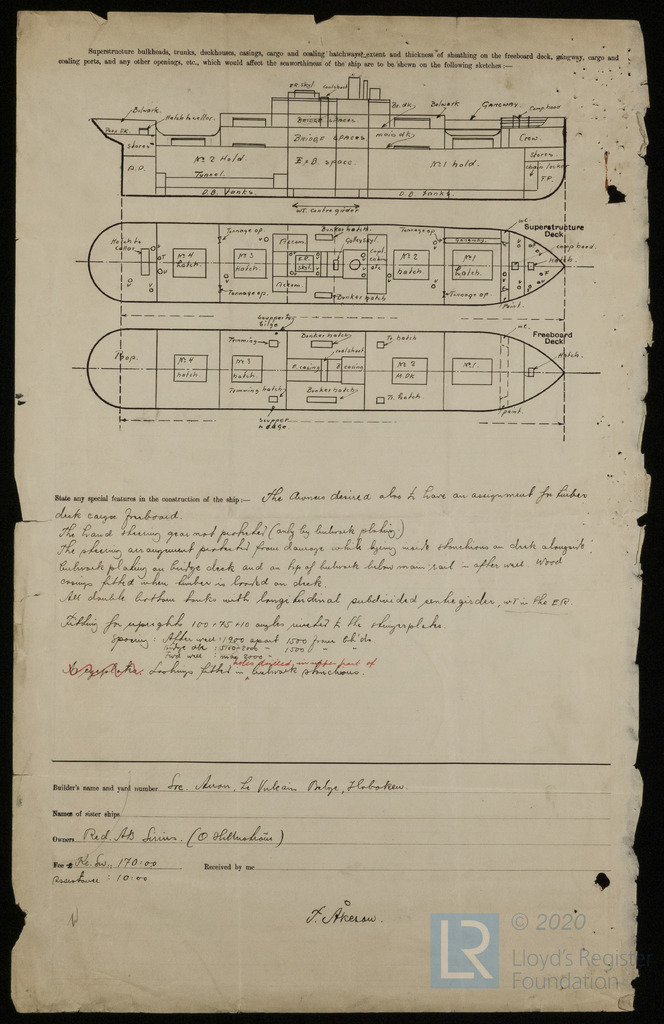 Superstructure bulkheads, trunks, deckhouses, casings, cargo and coaling hatchways, extent and thickness of sheathing on the freeboard deck, gangway, cargo and
coaling ports, and any other openings, etc., which would affect the seaworthiness of the ship are to be shewn on the following sketches :—
Bulwark
Poop DK.
Stores
A.P.
No. 2 Hold.
Tunnel.
D.B. Tanks.
BRIDGE SPACES
BRIDGE SPACES
E & B. space.
Br. dk
main dk
Bulwark
GANGWAY.
Crew.
Stores
chain locker
F.P.
No 1 hold.
D.B. Tanks.
WT. Centre girder
Superstructure
Deck
WC
Bunker hatch.
Tonnage op.
Tonnage op.
Hatch to
No 4
hatch.
No 3
Hatch.
Accom.
E.R.
Skyl.
No 2
hatch.
No 1
hatch.
Hatch.
Tonnage op.
Accom.
Bunker hatch
Tonnage op.
Freeboard
Deck
WC.
Trimming
Bunker hatch
Tr. hatch
Poop.
No 4
hatch.
No 3
hatch.
No 2
M.DK
No 1.
Hatch.
Trimming hatch
Bunker hatch
Tr. hatch
Scupper
State any special features in the construction of the ship :— The Owners desired also to have an assignment for timber
deck cargo freeboard.
The hand steering gear not protected (only by bulwark plating)
The steering arrangement protected from damage while being inside stanchions on deck alongside
bulwark plating on bridge deck and on top of bulwark below main rail - after well. Wood
casings fitted when timber is loaded on deck.
All double bottom tanks with longitudinal subdivided centregirder, WT in the E.R.
Fitting for uprights 100 × 75 × 10 angles riveted to the stringerplates.
Spacing: After well: 1900 apart 1500 from
1500
fitted - holes drilled in upper part of bulwark stanchions.
Builder's name and yard number Soc. Anon. Le Vulcain Belge, Hoboken.
Names of sister ships
Owners Red. AB Sirius. (O Hillerström)
Fee Kr. Sw. 170:00 Received by me
Assistance : 10:00
F. Åkerson.
LR
© 2020
Lloyd's Register
Foundation